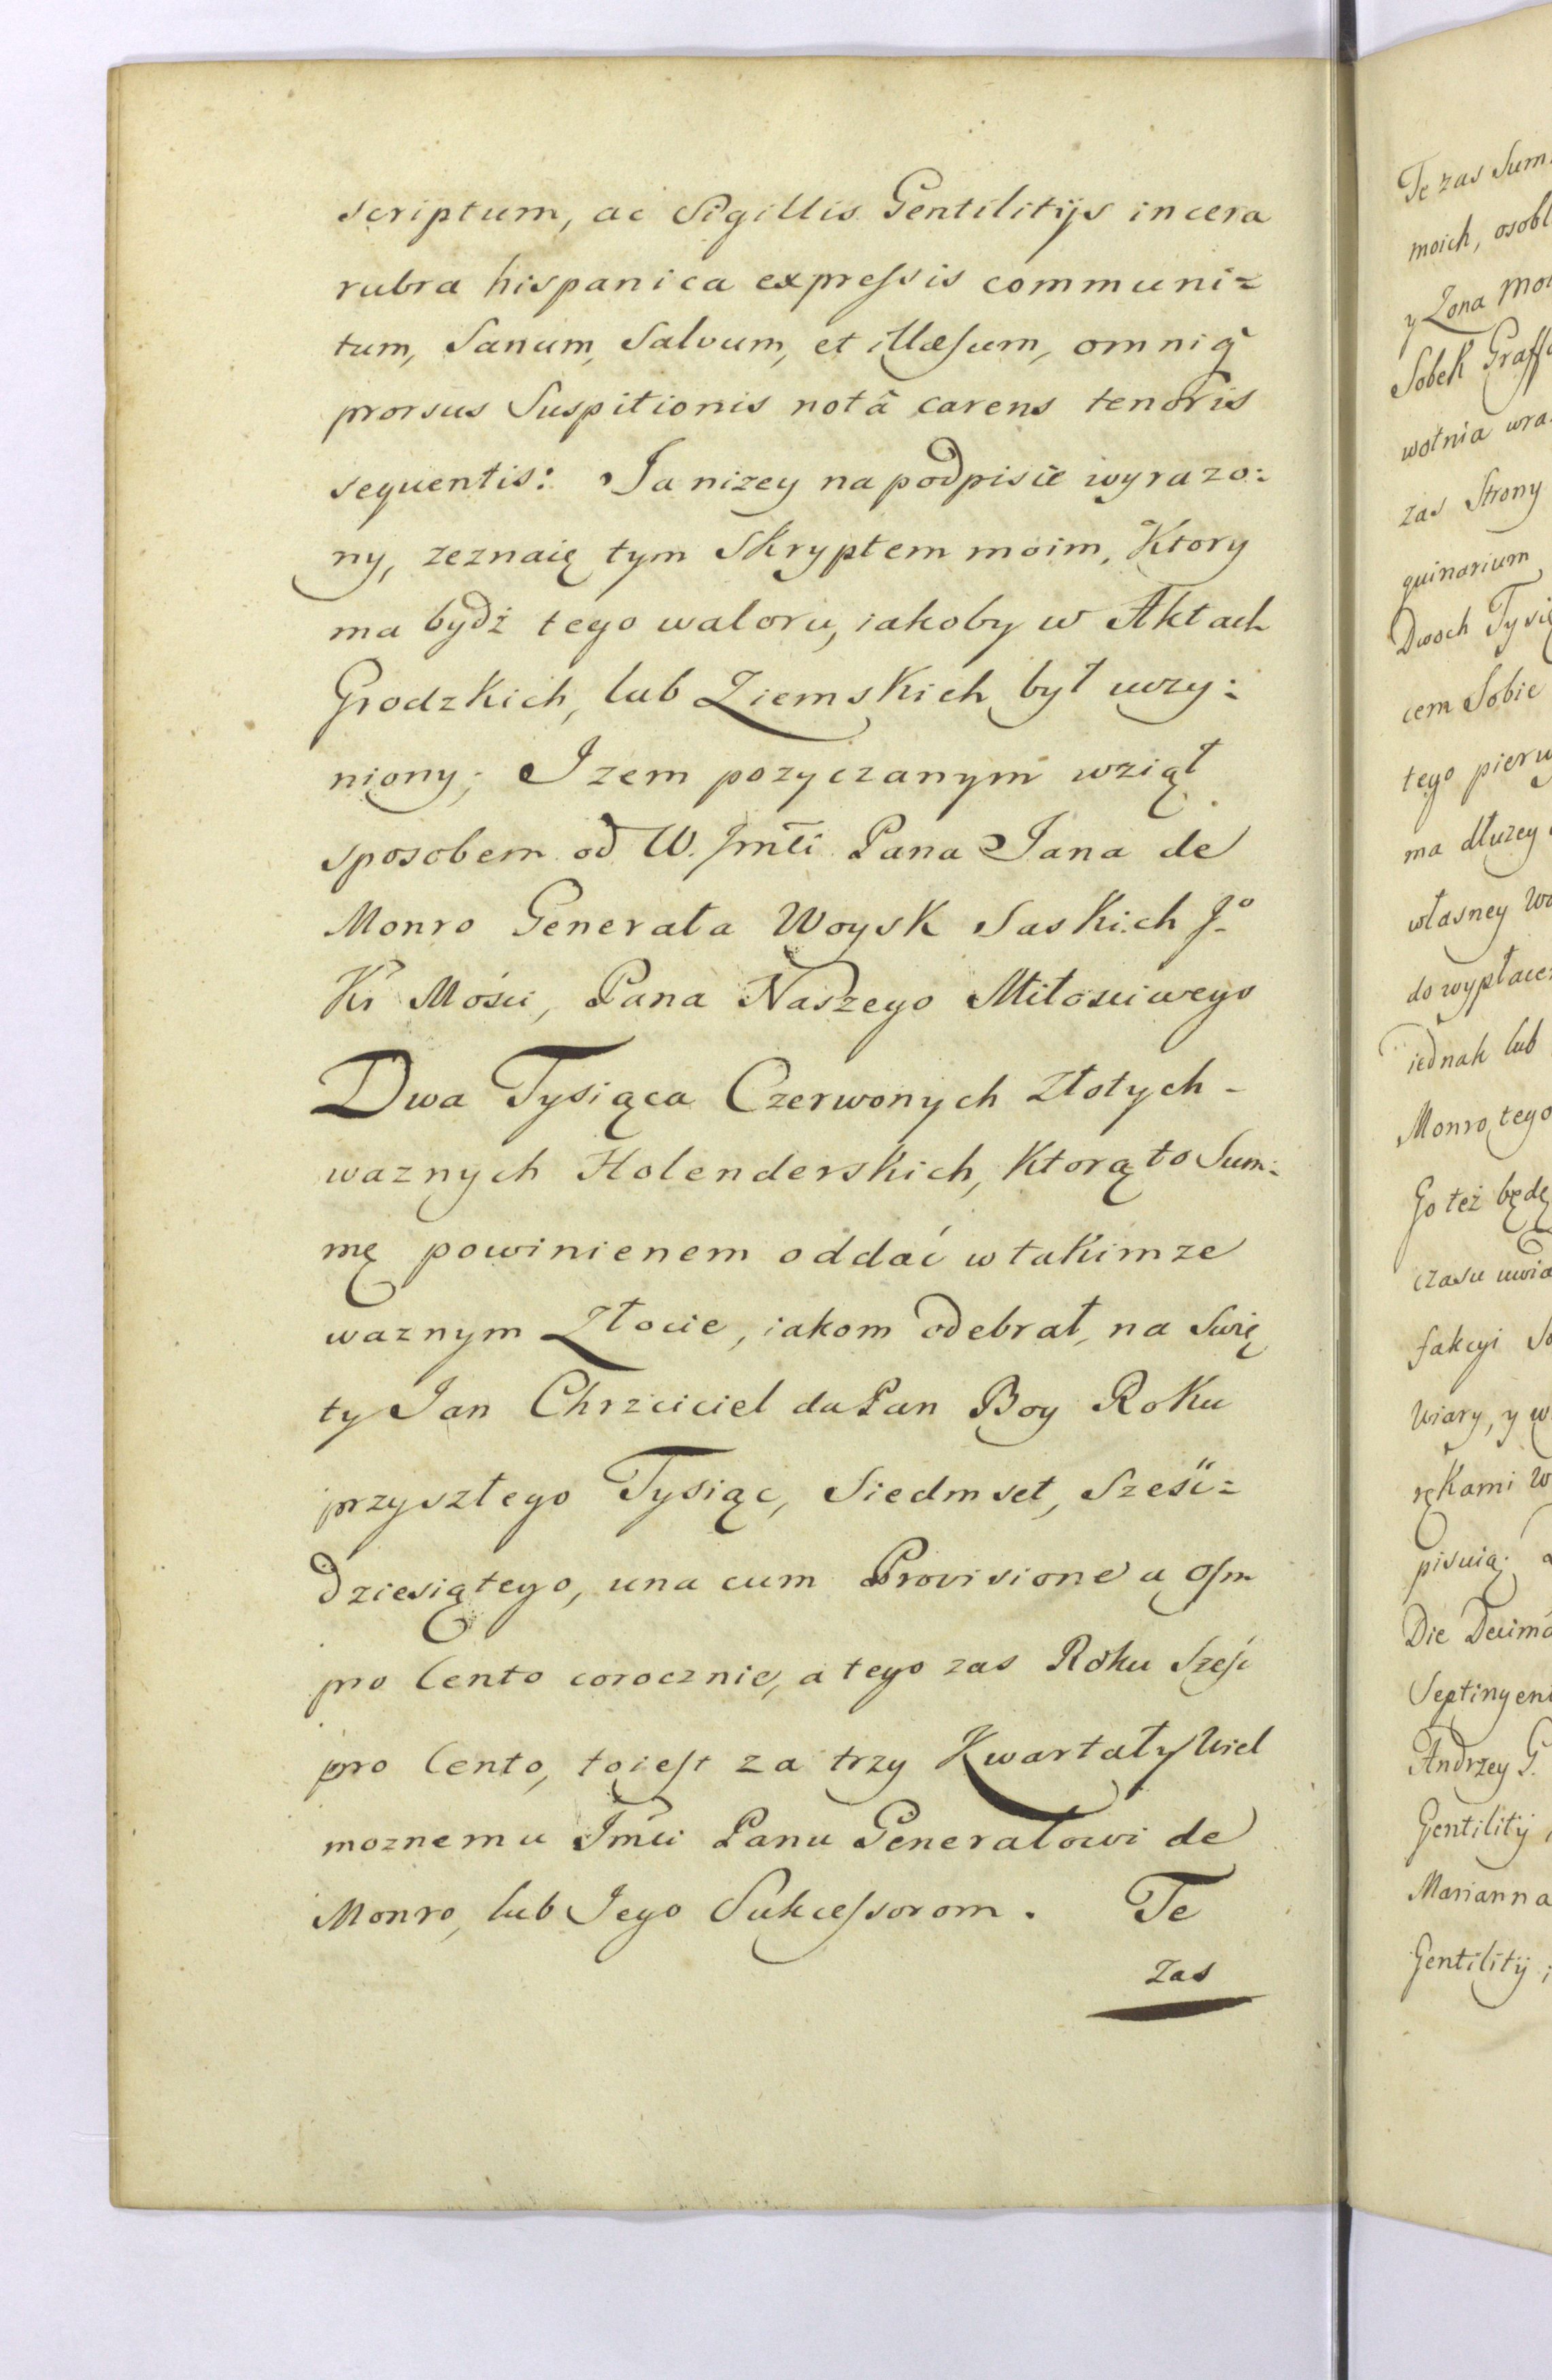 scriptum, ac Sigillis Gentilitijs in cera
rubra hispanica expressis communi=
tum, Sanum, Salvum, et illæsum, omniq̃
prorsus Suspitionis notâ carens tenoris
sequentis: Ja nizey na podpisie wyrazo:
ny, zeznaię tym Skryptem moim, Ktory
ma bydź tego waloru, iakoby w Aktach
Grodzkich, lub Ziemskich był uczy:
niony; Jzem pozyczanym wziął
sposobem od W. Jmći Pana Jana de
Monro Generała Woysk Saskich Jº
Kr Mości, Pana Naszego Miłosciwego
Dwa Tysiąca Czerwonych Złotych-
waznych Holenderskich, Ktorą to Sum-
mę powinienem oddać w takimze
waznym Złocie, iakom odebrał, na Swię
ty Jan Chrzciciel da Pan Boy Roku
przyszłego Tysiąc, Siedmset, Sześć=
dziesiątego, una cum Provisione a osm
pro Cento corocznie, a tego zas Roku Sześć
pro Cento, toiest za trzy Kwartały Wiel
moznemu Jmći Panu Generałowi de
Monro, lub Jego Sukcessorom. Te
zas
Te zas Sum
moich, osobl
y Zona mo
Sobek Graff
wotnia wra
zas Strony
quinarium
Dwoch Tysię
cem Sobie
tego pierw
ma dłuzey
własney
do wypłace
iednak lub
Monro, tego
Go też będę
czasu uwia
fakcyi
Wiary, y w
rękami W
pisuią.
Die Decimâ
Septingen
Andrzey G.
Gentilitij
Marianna
Gentilitij